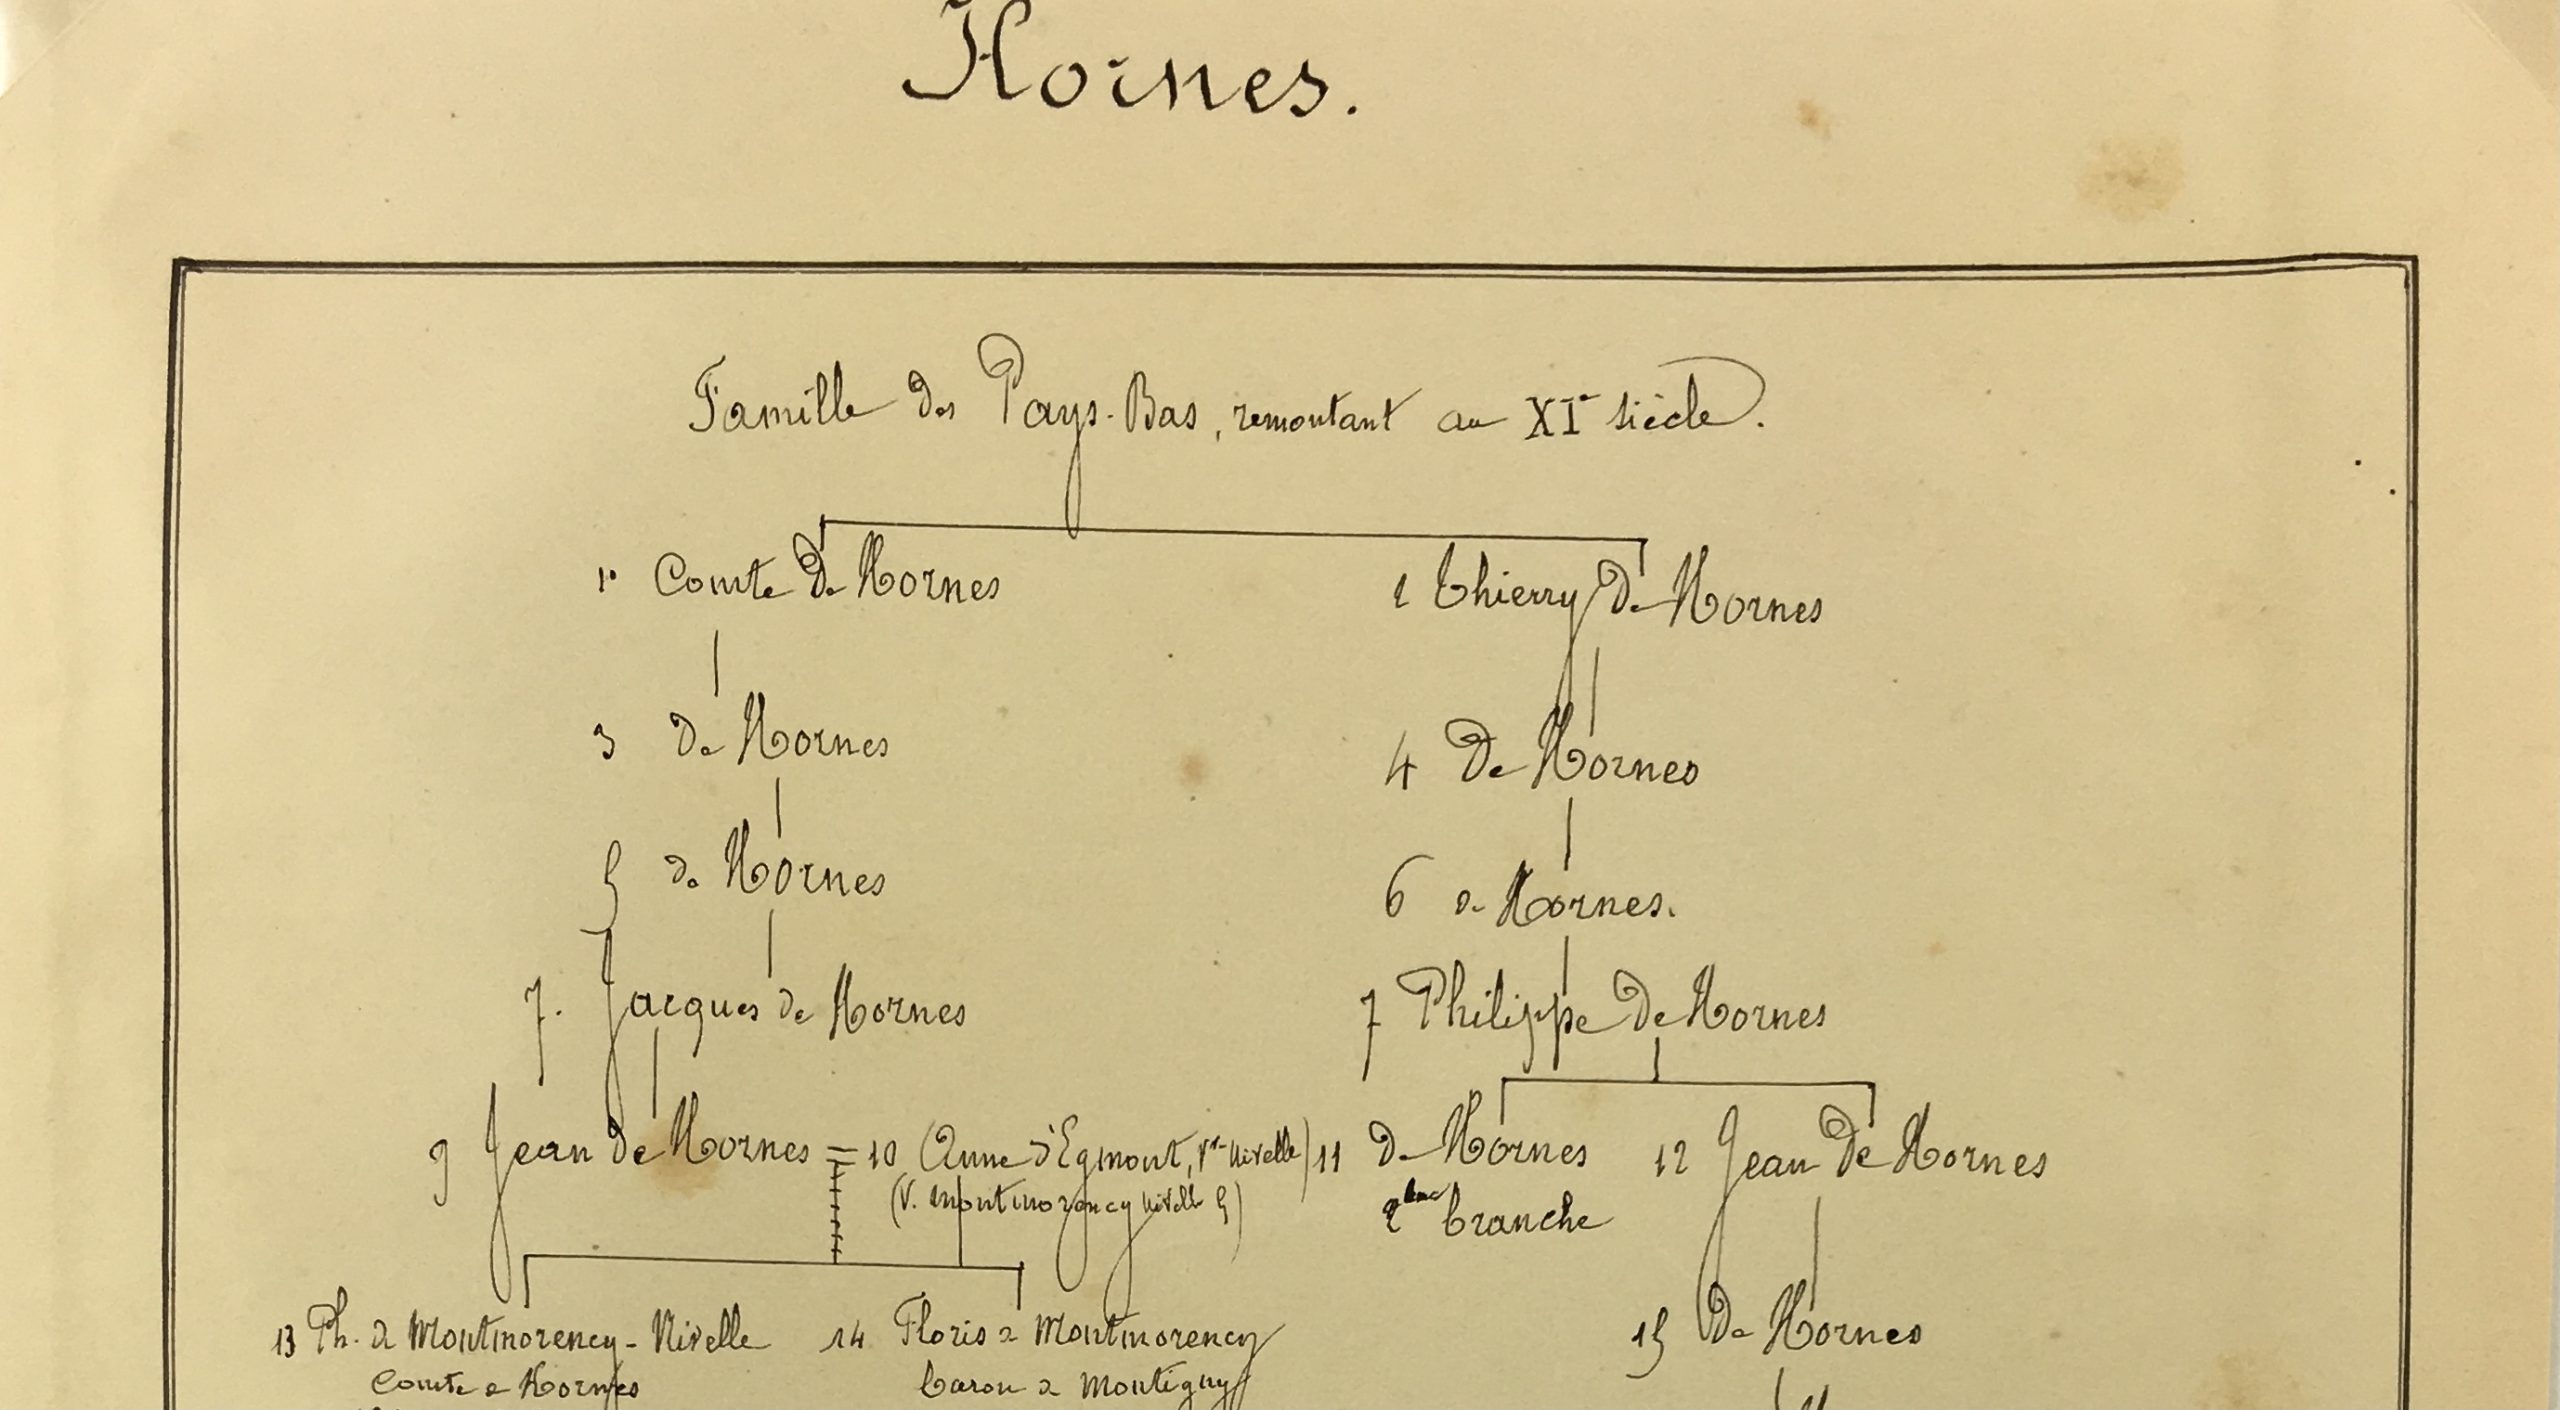 Hornes.
Famille des Pays-Bas, remontant au XIe siècle.
1. Comte de Hornes
2 Thierry de Hornes
3 de Hornes
4 de Hornes
5 de Hornes
6 de Hornes.
7. Jacques de Hornes
7 Philippe de Hornes
9 Jean de Hornes = 10 (Anne d'Egmont, Vve Nivelle)
(V. Montmorency Nivelle 5)
11 de Hornes
2ème branche
12 Jean de Hornes
13 Ph. de Montmorency-Nivelle
Comte de Hornes
14 Floris de Montmorency
baron de Montigny
15 de Hornes